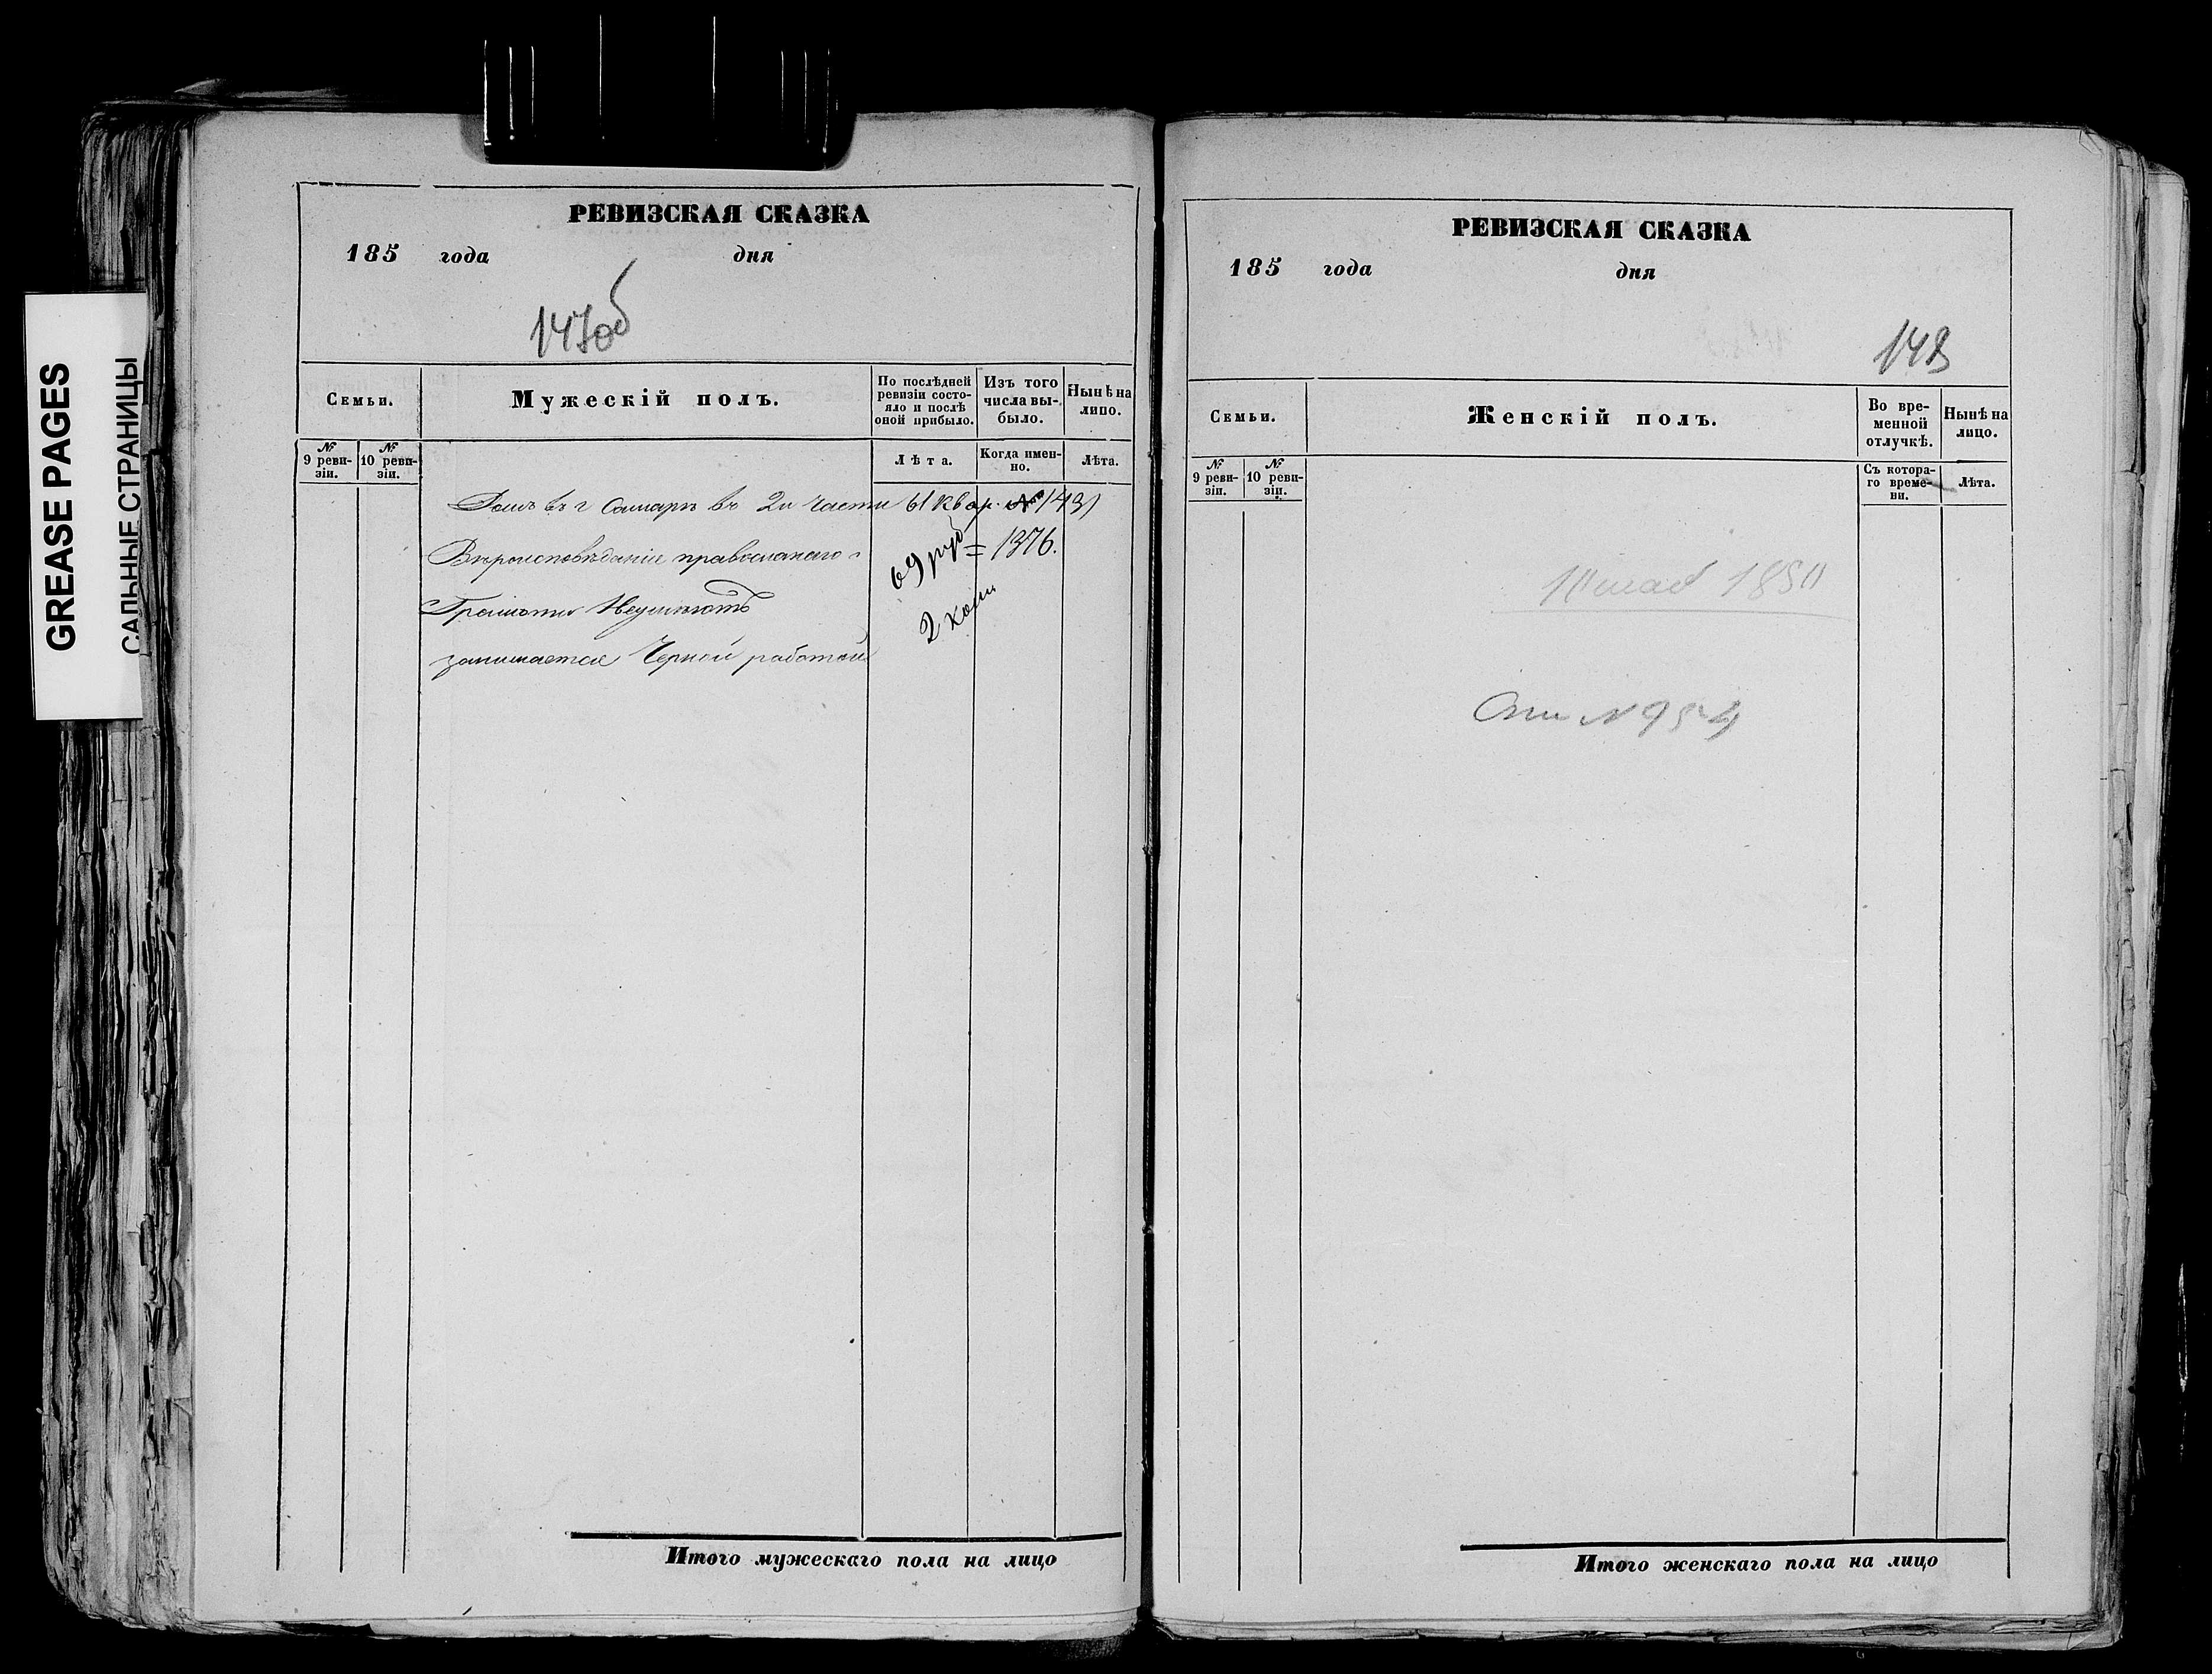 GREASE PAGES
САЛЬНЫЕ СТРАНИЦЫ
РЕВИЗСКАЯ СКАЗКА
185 года дня
147об
Семьи.
Мужескій полъ.
По послѣдней ревизіи состо-
яло и послѣ
оной прибыло.
Изъ того
числа вы-
было.
Нынѣ на
лицо.
№
9 реви-
зіи.
№
10 реви-
зіи.
Лѣта.
Когда имен-
но.
Лѣта.
Домъ въ г Самарѣ въ 2й части 61 квар. №
Вѣроисповѣданіе православнаго
69 руб = 1376.
Грамоти Неумѣютъ
2 коп
занимается Черной работой
Итого мужескаго пола на лицо
РЕВИЗСКАЯ СКАЗКА
185 года дня
148
Семьи.
Женскій полъ.
Во вре-
менной
отлучкѣ.
Нынѣ на
лицо.
№
9 реви-
зіи.
№
10 реви-
зіи.
Съ котора-
го време-
ни.
Лѣта.
1850
№ 954
Итого женскаго пола на лицо